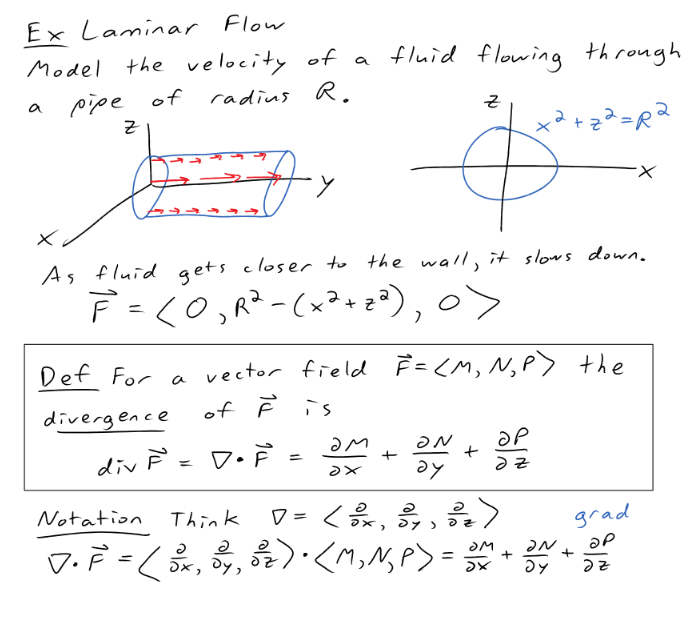 Ex Laminar Flow
Model the velocity of a fluid flowing through
a pipe of radius R.
z
y
x
z
x² + z² = R²
x
As fluid gets closer to the wall, it slows down.
F⃗ = ⟨0, R² − (x² + z²), 0⟩
Def For a vector field F⃗ = ⟨M, N, P⟩ the
divergence of F⃗ is
div F⃗ = ∇ · F⃗ = ∂M/∂x + ∂N/∂y + ∂P/∂z
Notation Think ∇ = ⟨∂/∂x, ∂/∂y, ∂/∂z⟩ grad
∇ · F⃗ = ⟨∂/∂x, ∂/∂y, ∂/∂z⟩ · ⟨M, N, P⟩ = ∂M/∂x + ∂N/∂y + ∂P/∂z